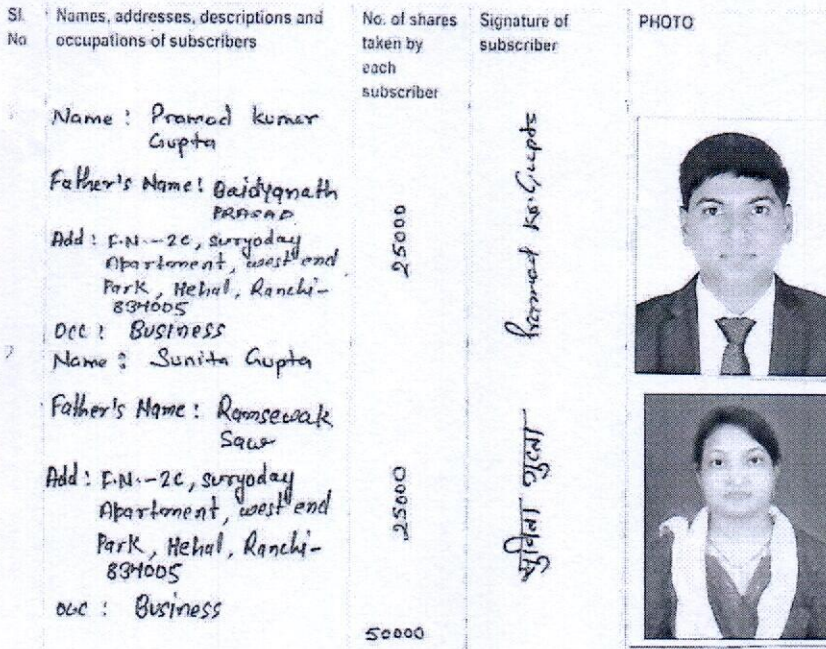 Sl. No
Names, addresses, descriptions and occupations of subscribers
No. of shares taken by each subscriber
Signature of subscriber
PHOTO
Name : Pramod kumar
Gupta
Father's Name : Baidyanath
PRASAD
Add : F.N.-2C, suryoday
Apartment, west end
Park, Hehal, Ranchi-
834005
Occ : Business
25000
Pramod Kr. Gupta
2
Name : Sunita Gupta
Father's Name : Ramsewak
Saw
Add : F.N.-2C, suryoday
Apartment, west end
Park, Hehal, Ranchi-
834005
occ : Business
25000
सुनिता गुप्ता
50000